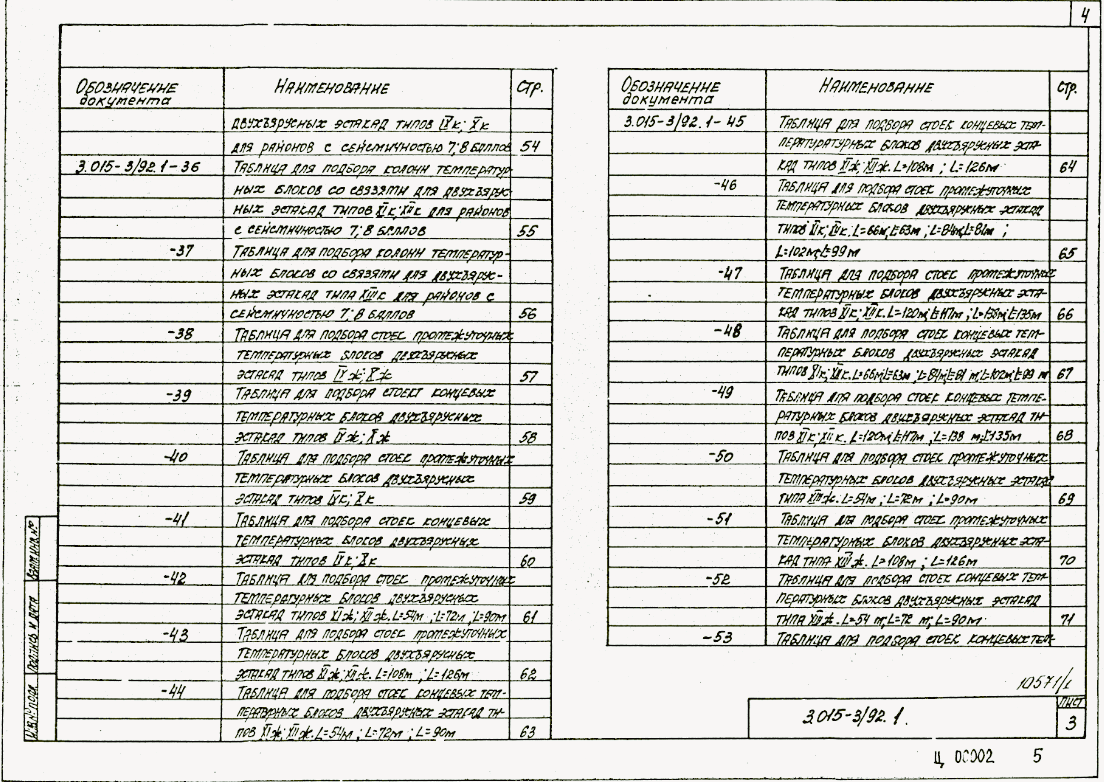 4
Обозначение документа
Наименование
Стр.
двухъярусных эстакад типов IXк; Xк
для районов с сейсмичностью 7; 8 баллов 54
3.015-3/92.1-36 Таблица для подбора колонн температур-
ных блоков со связями для двухъярус-
ных эстакад типов XIк; XIIк для районов
с сейсмичностью 7; 8 баллов 55
-37 Таблица для подбора колонн температур-
ных блоков со связями для двухъярус-
ных эстакад типа XIIIк для районов с
сейсмичностью 7; 8 баллов 56
-38 Таблица для подбора стоек промежуточных
температурных блоков двухъярусных
эстакад типов IXж; Xж 57
-39 Таблица для подбора стоек концевых
температурных блоков двухъярусных
эстакад типов IXж; Xж 58
-40 Таблица для подбора стоек промежуточных
температурных блоков двухъярусных
эстакад типов IXк; Xк 59
-41 Таблица для подбора стоек концевых
температурных блоков двухъярусных
эстакад типов IXк; Xк 60
-42 Таблица для подбора стоек промежуточных
температурных блоков двухъярусных
эстакад типов XIж; XIIж. L=54м; L=72м; L=90м 61
-43 Таблица для подбора стоек промежуточных
температурных блоков двухъярусных
эстакад типов XIж; XIIж. L=108м; L=126м 62
-44 Таблица для подбора стоек концевых тем-
пературных блоков двухъярусных эстакад ти-
пов XIж; XIIж. L=54м; L=72м; L=90м 63
Обозначение документа
Наименование
Стр.
3.015-3/92.1-45 Таблица для подбора стоек концевых тем-
пературатурных блоков двухъярусных эста-
кад типов XIж; XIIж. L=108м; L=126м 64
-46 Таблица для подбора стоек промежуточных
температурных блоков двухъярусных эстакад
типов XIк; XIIк. L=66м; L=63м; L=84м; L=81м;
L=102м; L=99м 65
-47 Таблица для подбора стоек промежуточных
температурных блоков двухъярусных эста-
кад типов XIк; XIIк. L=120м; L=117м; L=138м; L=135м 66
-48 Таблица для подбора стоек концевых тем-
пературных блоков двухъярусных эстакад
типов XIк; XIIк. L=66м; L=63м; L=84м; L=81м; L=102м; L=99м 67
-49 Таблица для подбора стоек концевых темпе-
ратурных блоков двухъярусных эстакад ти-
пов XIк; XIIк. L=120м; L=117м; L=138м; L=135м 68
-50 Таблица для подбора стоек промежуточных
температурных блоков двухъярусных эстакад
типа XIIIж. L=54м; L=72м; L=90м 69
-51 Таблица для подбора стоек промежуточных
температурных блоков двухъярусных эста-
кад типа XIIIж. L=108м; L=126м 70
-52 Таблица для подбора стоек концевых тем-
пературных блоков двухъярусных эстакад
типа XIIIж. L=54м; L=72м; L=90м 71
-53 Таблица для подбора стоек концевых тем-
Взам.инв.№
Подпись и дата
Инв.№ подл.
10571/1
3.015-3/92.1.
Лист
3
Ц 00002 5